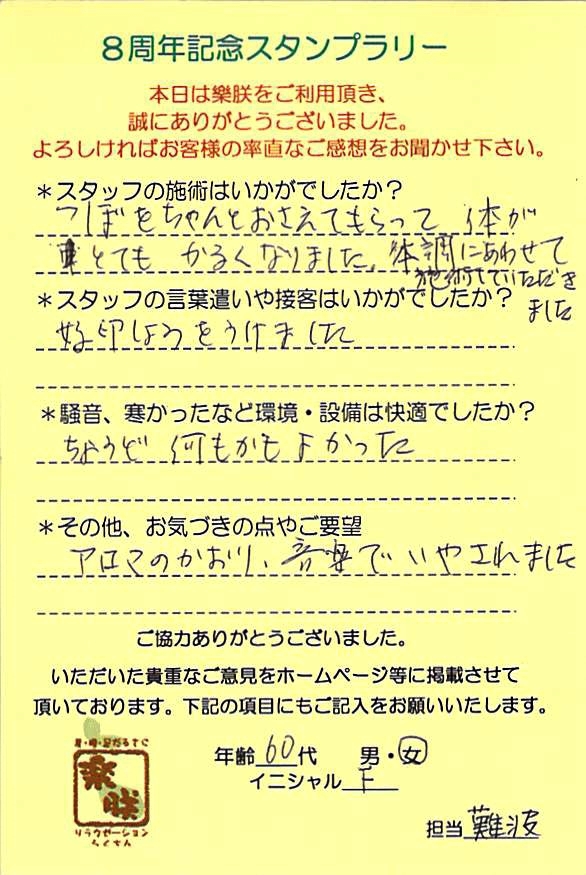 8周年記念スタンプラリー
本日は樂朕をご利用頂き、
誠にありがとうございました。
よろしければお客様の率直なご感想をお聞かせ下さい。
＊スタッフの施術はいかがでしたか？
つぼをちゃんとおさえてもらって 体が
とても かるくなりました。体調にあわせて
施術していただき
ました
＊スタッフの言葉遣いや接客はいかがでしたか？
好印しょうをうけました
＊騒音、寒かったなど環境・設備は快適でしたか？
ちょうど 何もかもよかった
＊その他、お気づきの点やご要望
アロマのかおり、音楽でいやされました
ご協力ありがとうございました。
いただいた貴重なご意見をホームページ等に掲載させて
頂いております。下記の項目にもご記入をお願いいたします。
年齢60代 男・女
イニシャル F
樂朕
リラクゼーション
らくちん
担当 難波